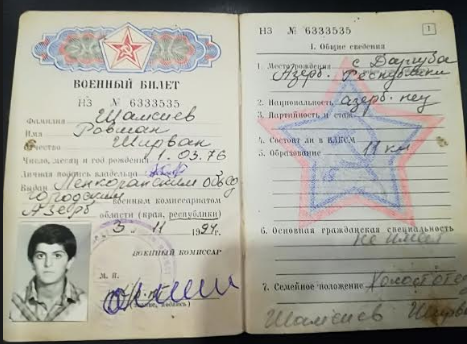 ВОЕННЫЙ БИЛЕТ
НЗ № 6333535
Фамилия Шамсиев
Имя Ровшан
Отчество Ширван
Число, месяц и год рождения 1. 03. 76
Личная подпись владельца
Выдан Ленкоранским
городским военным комиссариатом
Азерб. области (края, республики)
3 11 199
ВОЕННЫЙ КОМИССАР
М. П.
НЗ № 6333535
1
I. Общие сведения
1. Место рождения с.
Азерб. Республики
2. Национальность азерб.
3. Партийность и стаж
4. Состоит ли в ВЛКСМ
5. Образование 11 кл
6. Основная гражданская специальность
не имеет
7. Семейное положение Холост
Шамсиев Ширван